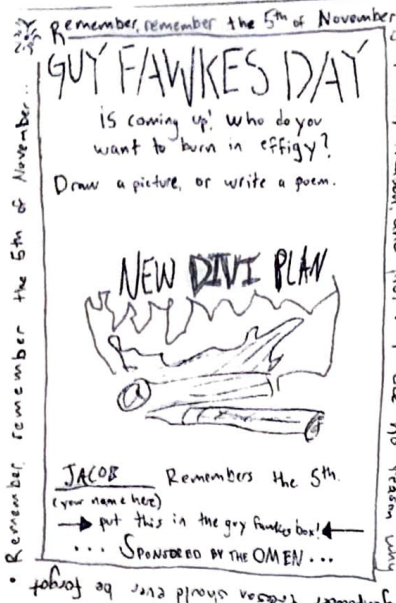 Remember, remember the 5th of November
GUY FAWKES DAY
is coming up! Who do you
want to burn in effigy?
Draw a picture, or write a poem.
NEW DIVI PLAN
JACOB Remembers the 5th.
(your name here)
put this in the guy fawkes box!
... SPONSORED BY THE OMEN ...
Remember remember the 5th of November...
treason should ever be forgot
no reason why